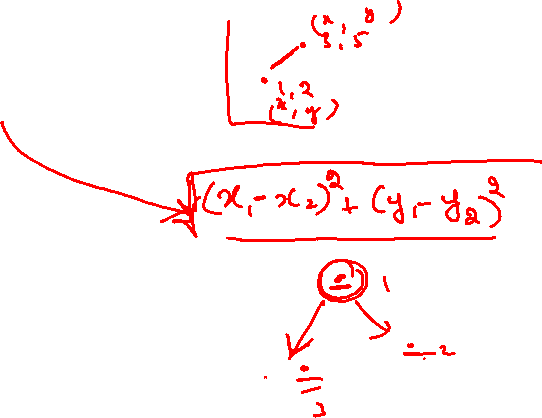 (x, y)
3, 5
1, 2
(x, y)
√(x₁-x₂)² + (y₁-y₂)²
1
2
3